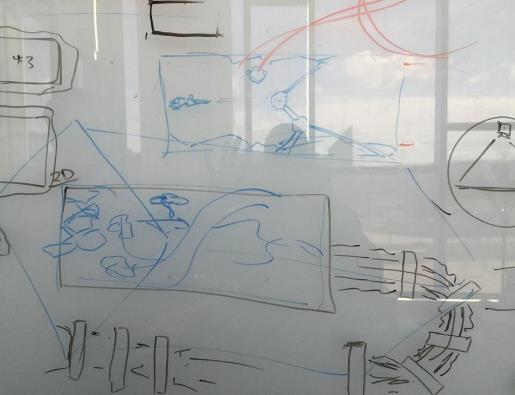 4:3
2D